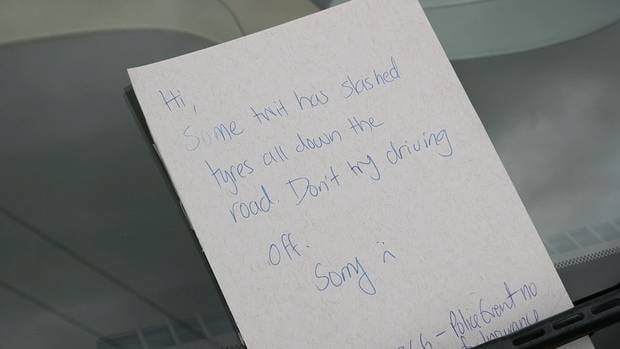 Hi,
Some twit has slashed
tyres all down the
road. Don't try driving
off.
Sorry :(
- Police Event no
Insurance